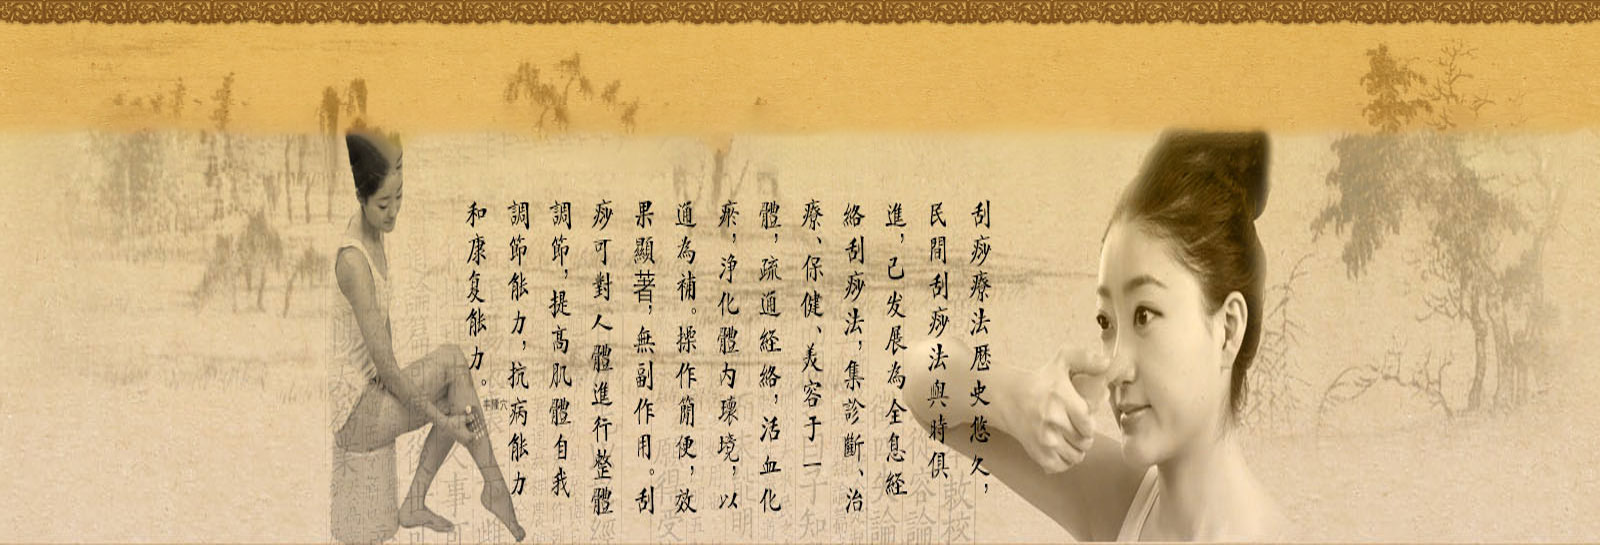 刮痧療法歷史悠久，
民間刮痧法與時俱
進，已发展為全息経
絡刮痧法，集診斷、治
療、保健、美容于一
體，疏通経絡，活血化
瘀，淨化體內環境，以
通為補。操作簡便，效
果顯著，無副作用。刮
痧可對人體進行整體
調節，提高肌體自我
調節能力，抗病能力
和康复能力。